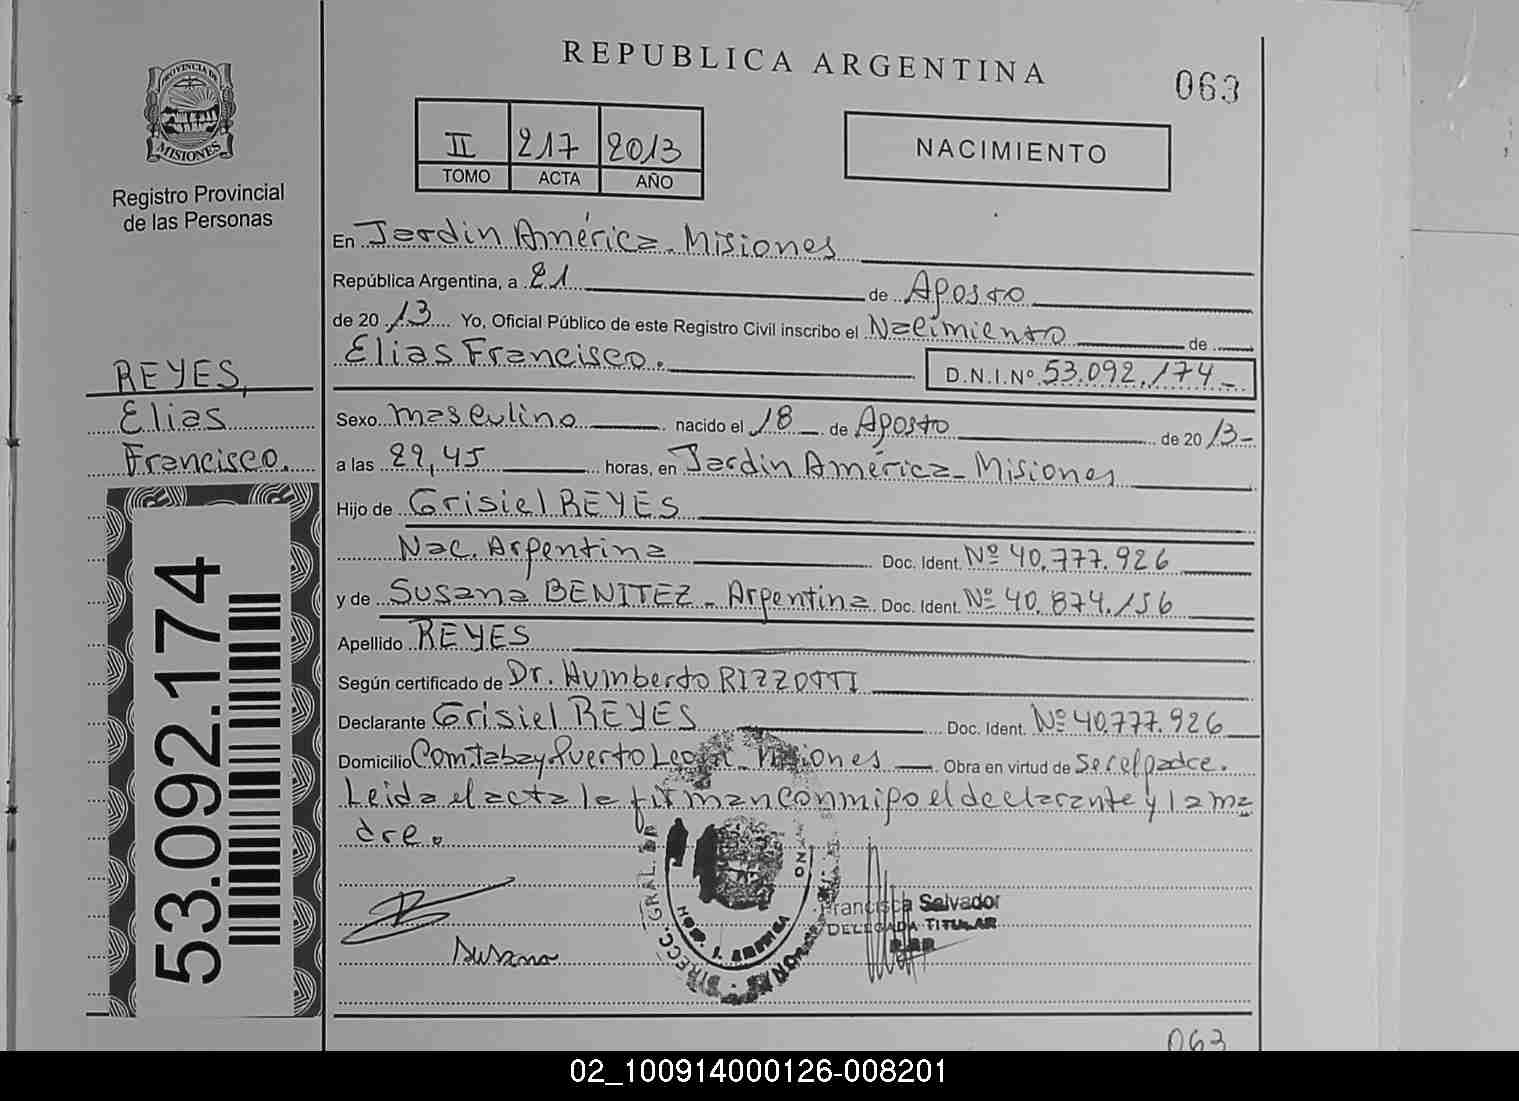 REPUBLICA ARGENTINA
063
PROVINCIA DE
MISIONES
Registro Provincial
de las Personas
II 217 2013
TOMO ACTA AÑO
NACIMIENTO
En Jardin América - Misiones
República Argentina, a 21 de Agosto
de 2013 Yo, Oficial Público de este Registro Civil inscribo el Nacimiento de
Elias Francisco.
D.N.I.Nº 53.092.174-
REYES,
Elias
Francisco.
53.092.174
Sexo masculino nacido el 18 de Agosto de 2013-
a las 22,45 horas, en Jardin América - Misiones
Hijo de Grisiel REYES
Nac. Argentina Doc. Ident. Nº 40.777.926
y de Susana BENITEZ - Argentina Doc. Ident. Nº 40.874.156
Apellido REYES
Según certificado de Dr. Humberto RIZZOTTI
Declarante Grisiel REYES Doc. Ident. Nº 40.777.926
Domicilio Puerto - Misiones Obra en virtud de Ser el padre.
Leida el acta la firman conmigo el declarante y la ma
dre.
Susana
DIRECC. GRAL.
HOSP. J. AMERICA
Francisca Salvador
DELEGADA TITULAR
063
02_100914000126-008201